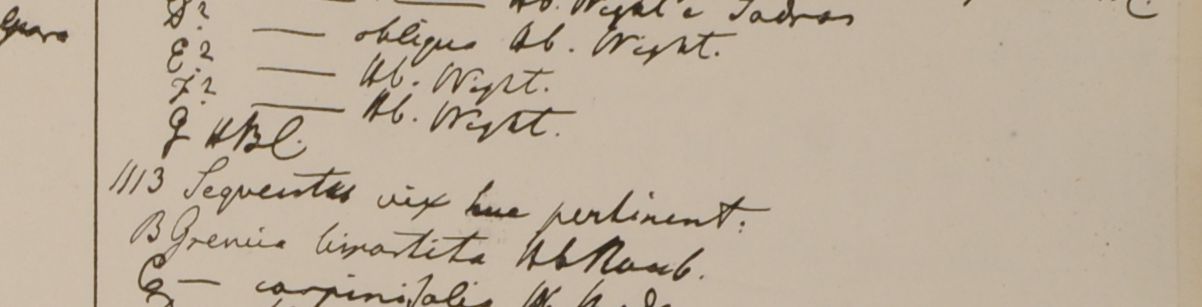 D? — — Hb. Wight e Madras
E? — obliqua Hb. Wight.
F? — Hb. Wight.
— Hb. Wight.
G HBC.
1113 Sequentes vix huc pertinent:
B Grewia bipartita Hb Roxb.
— carpinifolia